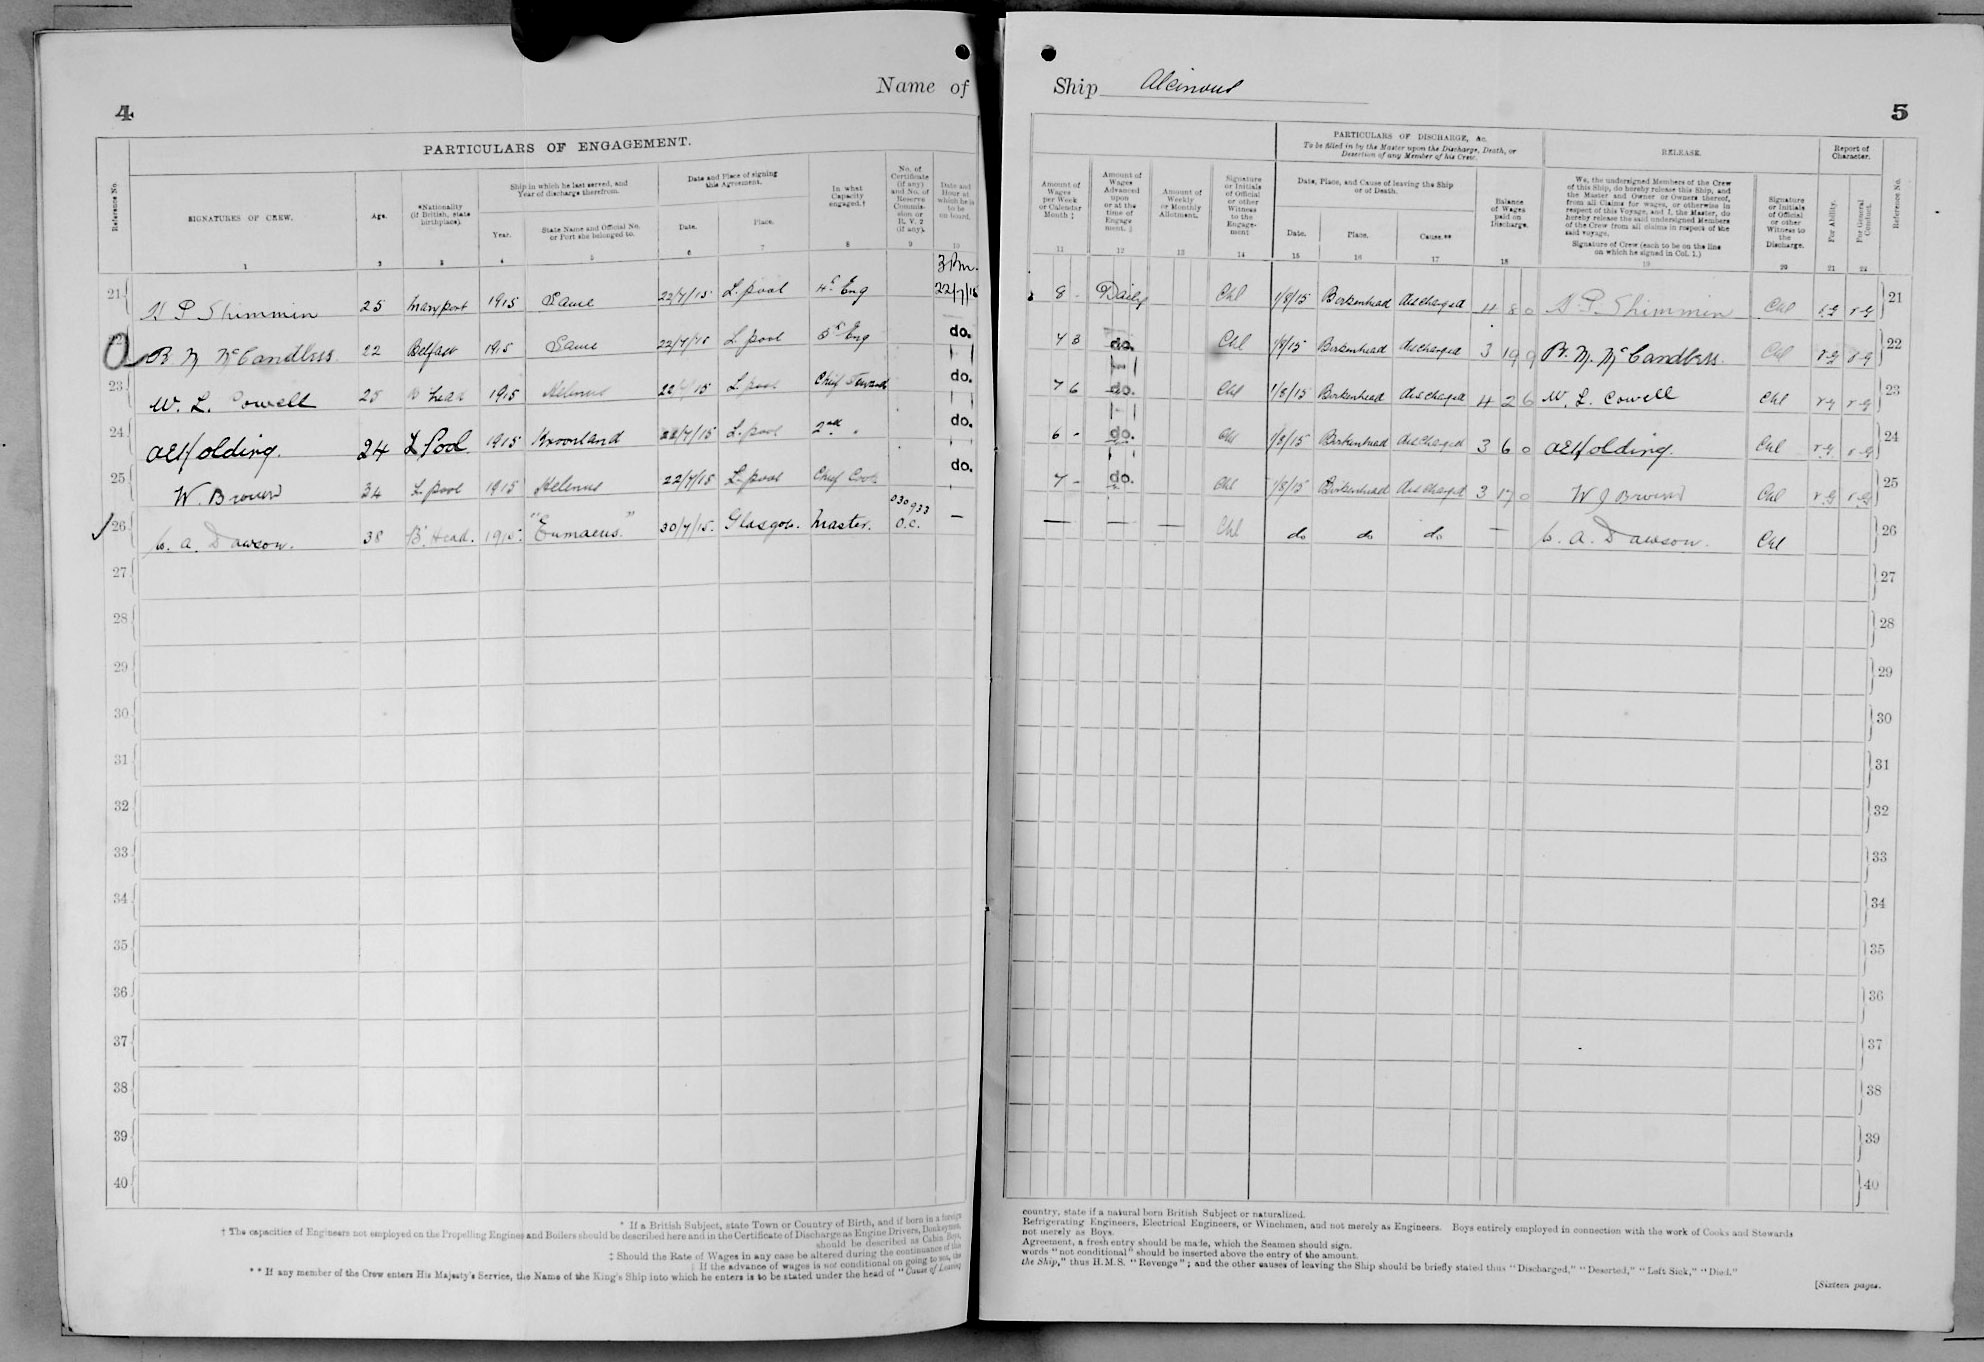 Name of Ship Alcinous
4
5
PARTICULARS OF ENGAGEMENT.
Reference No.
SIGNATURES OF CREW.
Age.
*Nationality (if British, state birthplace).
Ship in which he last served, and Year of discharge therefrom.
Year.
State Name and Official No. or Port she belonged to.
Date and Place of signing this Agreement.
Date.
Place.
In what Capacity engaged.†
No. of Certificate (if any) and No. of Reserve Commission or R. V. 2 (if any).
Date and Hour at which he is to be on board.
1 2 3 4 5 6 7 8 9 10
Amount of Wages per Week or Calendar Month ‡
Amount of Wages Advanced upon or at the time of Engagement.
Amount of Weekly or Monthly Allotment.
Signature or Initials of Official or other Witness to the Engagement
PARTICULARS OF DISCHARGE, &c.
To be filled in by the Master upon the Discharge, Death, or Desertion of any Member of his Crew.
Date, Place, and Cause of leaving the Ship or of Death.
Date.
Place.
Cause.**
Balance of Wages paid on Discharge.
RELEASE.
We, the undersigned Members of the Crew of this Ship, do hereby release this Ship, and the Master and Owner or Owners thereof, from all Claims for wages, or otherwise in respect of this Voyage, and I, the Master, do hereby release the said undersigned Members of the Crew from all claims in respect of the said voyage.
Signature of Crew (each to be on the line on which he signed in Col. 1.)
Signature or Initials of Official or other Witness to the Discharge.
Report of Character.
For Ability.
For General Conduct.
Reference No.
11 12 13 14 15 16 17 18 19 20 21 22
3 Pm.
21 P Shimmin 25 Maryport 1915 Same 22/7/15 L.pool 4th Eng 22/7/15 8 - Daily Chl 1/8/15 Birkenhead discharged 4 8 0 P. Shimmin Chl V.G V-G 21
22 R M McCandless 22 Belfast 1915 Same 22/7/15 L pool 5th Eng do. 7 3 do. Chl 1/8/15 Birkenhead discharged 3 19 9 R. M. McCandless Chl V.G V-G 22
23 W. L. Cowell 25 B head 1915 Helenus 22/7/15 L pool Chief Steward do. 7 6 do. Chl 1/8/15 Birkenhead discharged 4 2 6 W. L. Cowell Chl V-G V-G 23
24 Holding. 24 L Pool 1915 22/7/15 L.pool 2nd " do. 6 - do. Chl 1/8/15 Birkenhead discharged 3 6 0 Holding. Chl V-G V-G 24
25 W. Brown 34 L.pool 1915 Helenus 22/7/15 L.pool Chief Cook do. 7 - do. Chl 1/8/15 Birkenhead discharged 3 17 0 W J Brown Chl V.G V-G 25
26 A. Dawson. 38 B'Head. 1915. "Eumaeus." 30/7/15. Glasgow. Master. 030933 O.C. — — — — Chl do do do — A. Dawson. Chl 26
27 27
28 28
29 29
30 30
31 31
32 32
33 33
34 34
35 35
36 36
37 37
38 38
39 39
40 40
* If a British Subject, state Town or Country of Birth, and if born in a foreign country, state if a natural born British Subject or naturalized.
† The capacities of Engineers not employed on the Propelling Engines and Boilers should be described here and in the Certificate of Discharge as Engine Drivers, Donkeymen, Refrigerating Engineers, Electrical Engineers, or Winchmen, and not merely as Engineers. Boys entirely employed in connection with the work of Cooks and Stewards should be described as Cabin Boys, not merely as Boys.
‡ Should the Rate of Wages in any case be altered during the continuance of the Agreement, a fresh entry should be made, which the Seamen should sign.
If the advance of wages is not conditional on going to sea, the words "not conditional" should be inserted above the entry of the amount.
** If any member of the Crew enters His Majesty's Service, the Name of the King's Ship into which he enters is to be stated under the head of "Cause of Leaving the Ship," thus H.M.S. "Revenge"; and the other causes of leaving the Ship should be briefly stated thus "Discharged," "Deserted," "Left Sick," "Died."
[Sixteen pages.